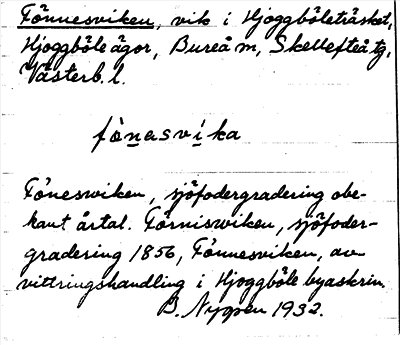 Fönnesviken, vik i Hjoggböleträsket,
Hjoggböle ägor, Bureå m, Skellefteå tg,
Västerb. l.
fònasvíka
Fónesviken, sjöfodergradering obe-
kant årtal. Förnisviken, sjöfoder-
gradering 1856, Fönnesviken, av-
vittringshandling i Hjoggböle byaskrin.
B. 1932.